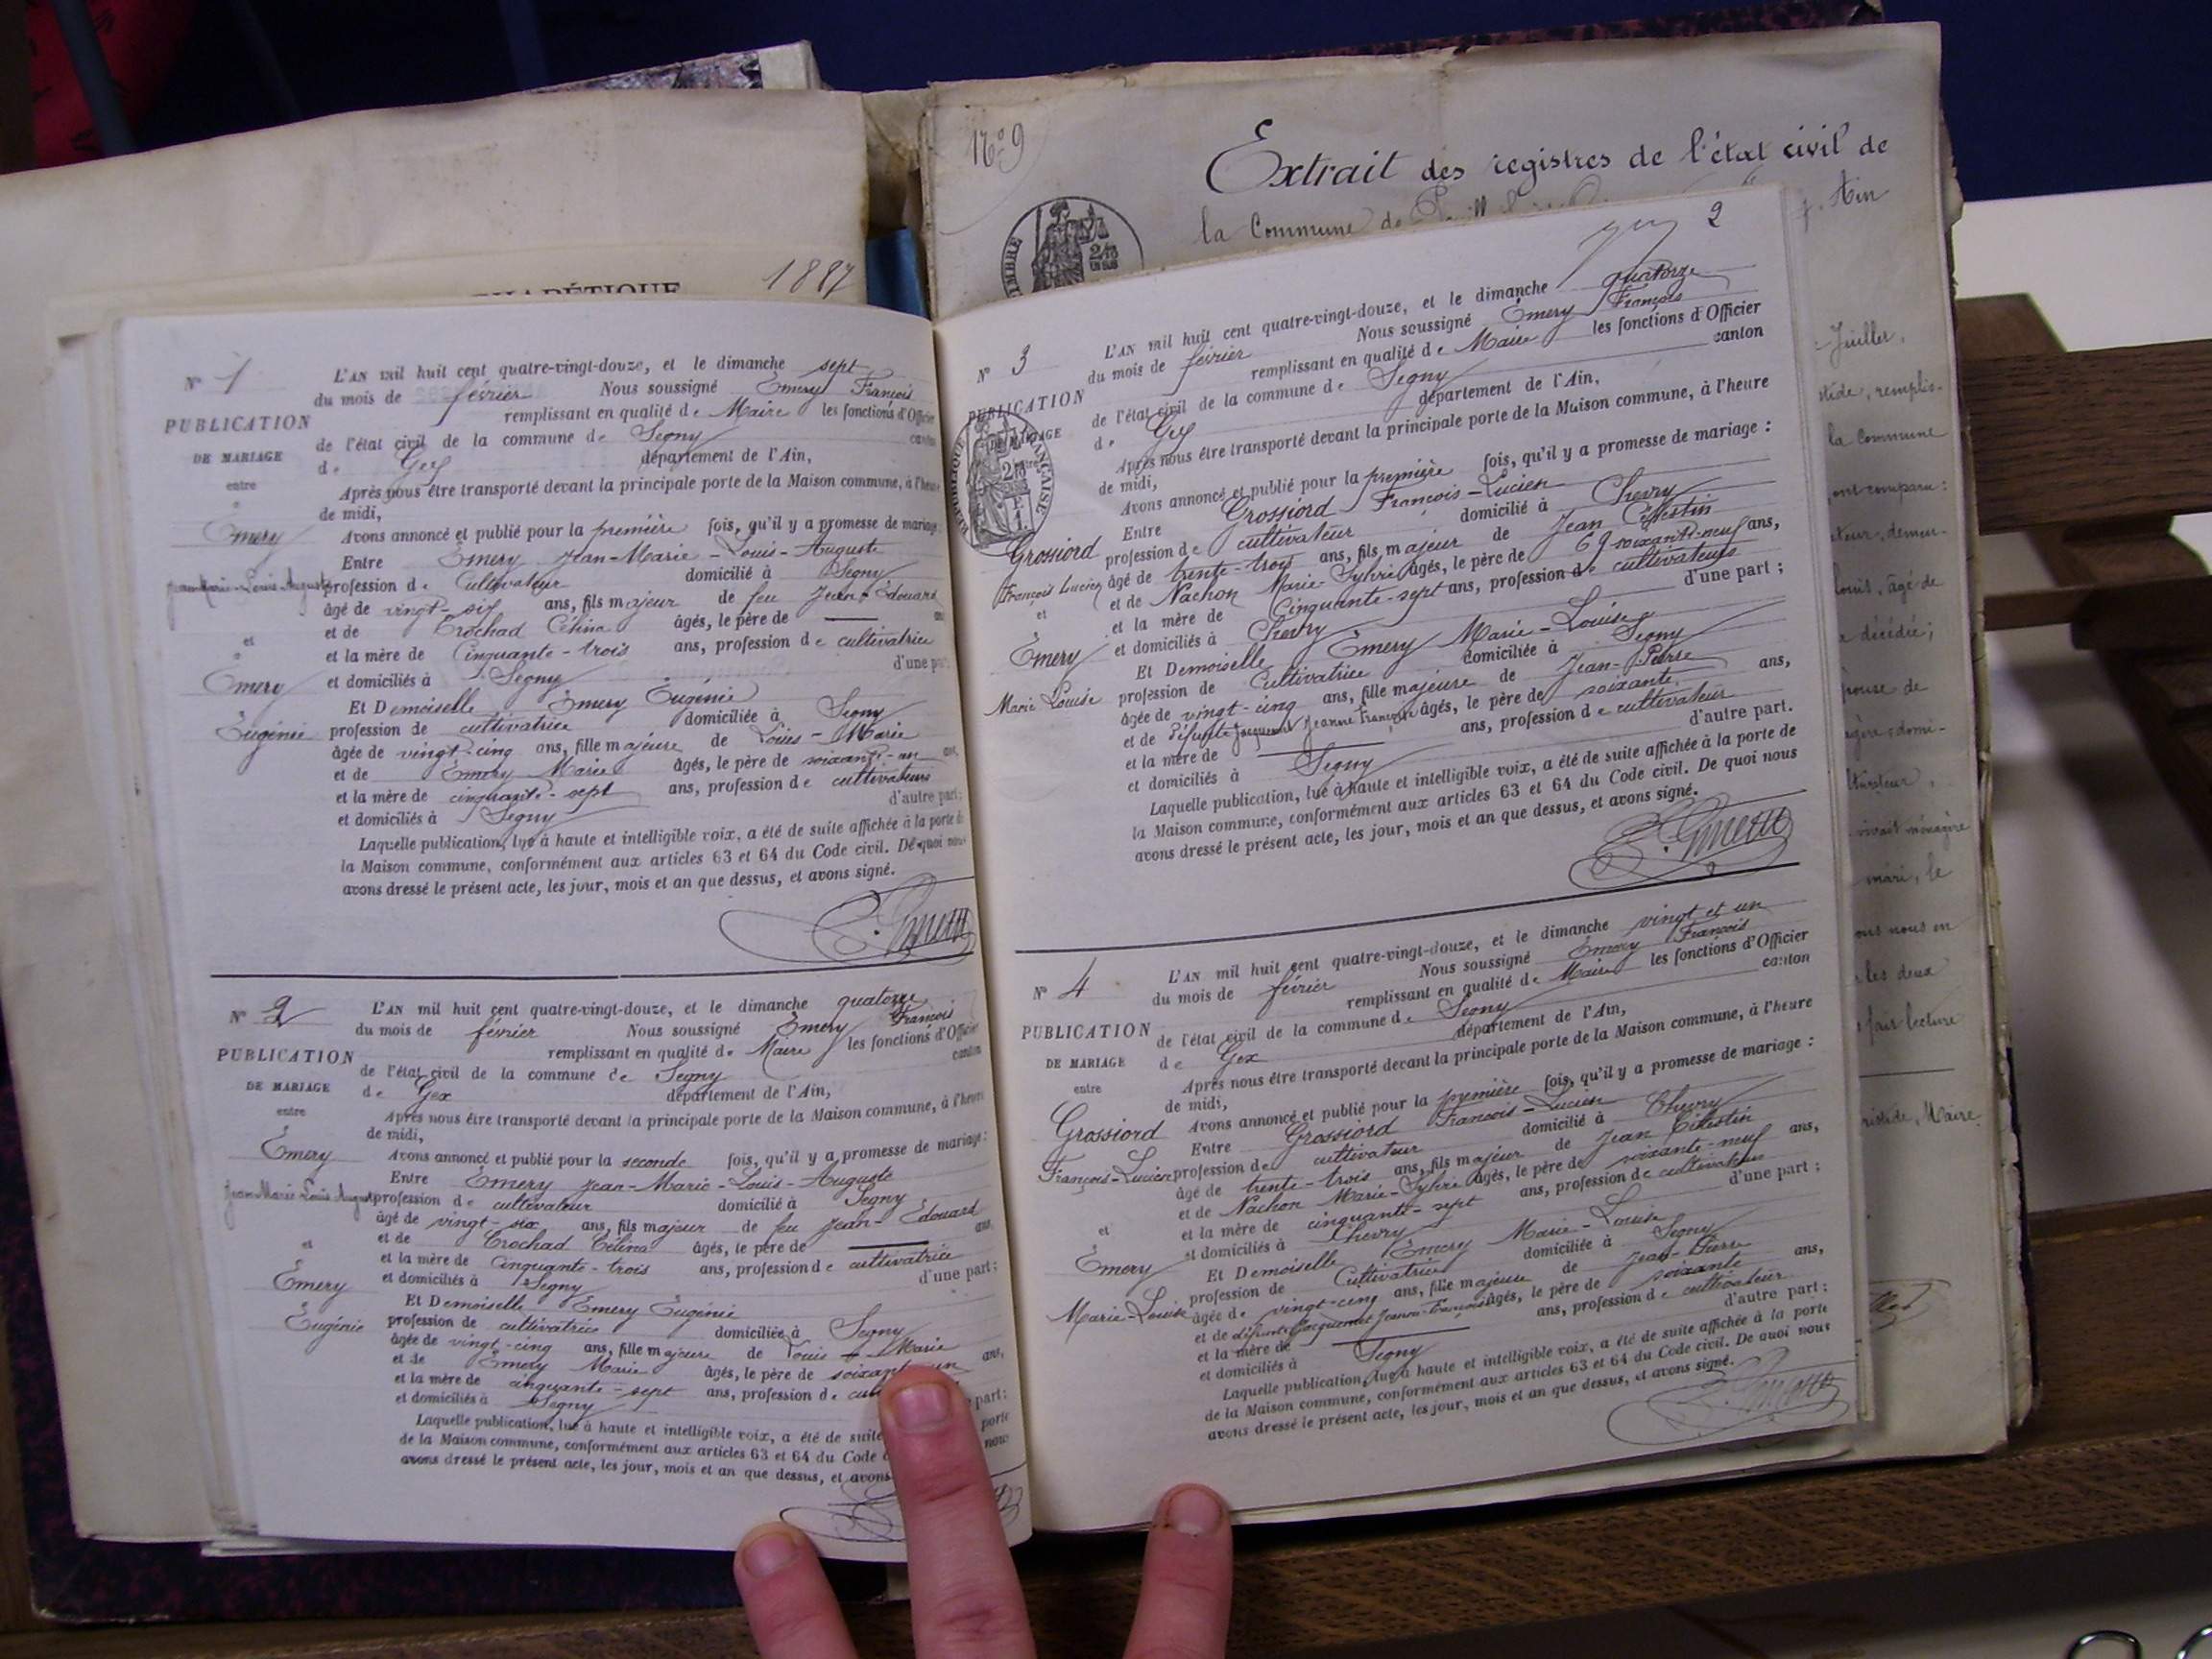 1887
N° 1
L'AN mil huit cent quatre-vingt-douze, et le dimanche sept
du mois de février Nous soussigné Emery François
remplissant en qualité de Maire les fonctions d'Officier
PUBLICATION
de l'état civil de la commune de Segny canton
DE MARIAGE
de Gex département de l'Ain,
entre
Après nous être transporté devant la principale porte de la Maison commune, à l'heure
de midi,
Emery
Avons annoncé et publié pour la première fois, qu'il y a promesse de mariage :
Entre Emery Jean-Marie-Louis-Auguste
Jean Marie-Louis-Auguste
profession de Cultivateur domicilié à Segny
âgé de vingt-six ans, fils majeur de feu Jean-Edouard
et
et de Crochad Célina âgés, le père de — ans
et la mère de Cinquante-trois ans, profession de cultivatrice
Emery
et domiciliés à Segny d'une part
Et Demoiselle Emery Eugénie
Eugénie
profession de cultivatrice domiciliée à Segny
âgée de vingt-cinq ans, fille majeure de Louis-Marie
et de Emery Marie âgés, le père de soixante-un ans,
et la mère de cinquante-sept ans, profession de cultivateurs
et domiciliés à Segny d'autre part;
Laquelle publication, lue à haute et intelligible voix, a été de suite affichée à la porte de
la Maison commune, conformément aux articles 63 et 64 du Code civil. De quoi nous
avons dressé le présent acte, les jour, mois et an que dessus, et avons signé.
N° 2
L'AN mil huit cent quatre-vingt-douze, et le dimanche quatorze
du mois de février Nous soussigné Emery François
remplissant en qualité de Maire les fonctions d'Officier
PUBLICATION
de l'état civil de la commune de Segny canton
DE MARIAGE
de Gex département de l'Ain,
entre
Après nous être transporté devant la principale porte de la Maison commune, à l'heure
de midi,
Emery
Avons annoncé et publié pour la seconde fois, qu'il y a promesse de mariage :
Entre Emery Jean-Marie-Louis-Auguste
Jean Marie Louis August
profession de cultivateur domicilié à Segny
âgé de vingt-six ans, fils majeur de feu Jean-Edouard
et
et de Crochad Célina âgés, le père de — ans,
et la mère de Cinquante-trois ans, profession de cultivatrice
Emery
et domiciliés à Segny d'une part;
Et Demoiselle Emery Eugénie
Eugénie
profession de cultivatrice domiciliée à Segny
âgée de vingt-cinq ans, fille majeure de Louis-Marie
et de Emery Marie âgés, le père de soixante-un ans,
et la mère de cinquante-sept ans, profession de
et domiciliés à Segny part;
Laquelle publication, lue à haute et intelligible voix, a été de suite porte
de la Maison commune, conformément aux articles 63 et 64 du Code nous
avons dressé le présent acte, les jour, mois et an que dessus, et avons
N° 9
Extrait des registres de l'état civil de
la Commune de
Ain
2
N° 3
L'AN mil huit cent quatre-vingt-douze, et le dimanche quatorze
du mois de février Nous soussigné Emery François
remplissant en qualité de Maire les fonctions d'Officier
PUBLICATION
de l'état civil de la commune de Segny canton
DE MARIAGE
de Gex département de l'Ain,
Après nous être transporté devant la principale porte de la Maison commune, à l'heure
de midi,
Avons annoncé et publié pour la première fois, qu'il y a promesse de mariage :
Entre Grossiord François-Lucien
Grossiord
profession de cultivateur domicilié à Chevry
François Lucien
âgé de trente-trois ans, fils majeur de Jean Célestin
et de Nachon Marie-Sylvie âgés, le père de 69 soixante-neuf ans,
et
et la mère de Cinquante-sept ans, profession de cultivateurs
Emery
et domiciliés à Chevry d'une part ;
Et Demoiselle Emery Marie-Louise
Marie Louise
profession de Cultivatrice domiciliée à Segny
âgée de vingt-cinq ans, fille majeure de Jean-Pierre
et de défunte Jacquemet Jeanne Françoise âgés, le père de soixante ans,
et la mère de — ans, profession de cultivateur
et domiciliés à Segny d'autre part.
Laquelle publication, lue à haute et intelligible voix, a été de suite affichée à la porte de
la Maison commune, conformément aux articles 63 et 64 du Code civil. De quoi nous
avons dressé le présent acte, les jour, mois et an que dessus, et avons signé.
N° 4
L'AN mil huit cent quatre-vingt-douze, et le dimanche vingt et un
du mois de février Nous soussigné Emery François
remplissant en qualité de Maire les fonctions d'Officier
PUBLICATION
de l'état civil de la commune de Segny canton
DE MARIAGE
de Gex département de l'Ain,
entre
Après nous être transporté devant la principale porte de la Maison commune, à l'heure
de midi,
Grossiord
Avons annoncé et publié pour la première fois, qu'il y a promesse de mariage :
Entre Grossiord François-Lucien
François-Lucien
profession de cultivateur domicilié à Chevry
âgé de trente-trois ans, fils majeur de Jean Célestin
et de Nachon Marie-Sylvie âgés, le père de soixante-neuf ans,
et
et la mère de cinquante-sept ans, profession de cultivateurs
Emery
et domiciliés à Chevry d'une part ;
Et Demoiselle Emery Marie-Louise
profession de Cultivatrice domiciliée à Segny
Marie-Louise
âgée de vingt-cinq ans, fille majeure de Jean-Pierre
et de défunte Jacquemet Jeanne-Françoise âgés, le père de soixante ans,
et la mère de — ans, profession de cultivateur
et domiciliés à Segny d'autre part ;
Laquelle publication, lue à haute et intelligible voix, a été de suite affichée à la porte
de la Maison commune, conformément aux articles 63 et 64 du Code civil. De quoi nous
avons dressé le présent acte, les jour, mois et an que dessus, et avons signé.
Juillet,
remplis-
la Commune
ont comparu :
demeu-
Louis, âgé de
décédée;
épouse de
domi-
vivait ménagère
mari, le
nous en
les deux
fait lecture
Maire